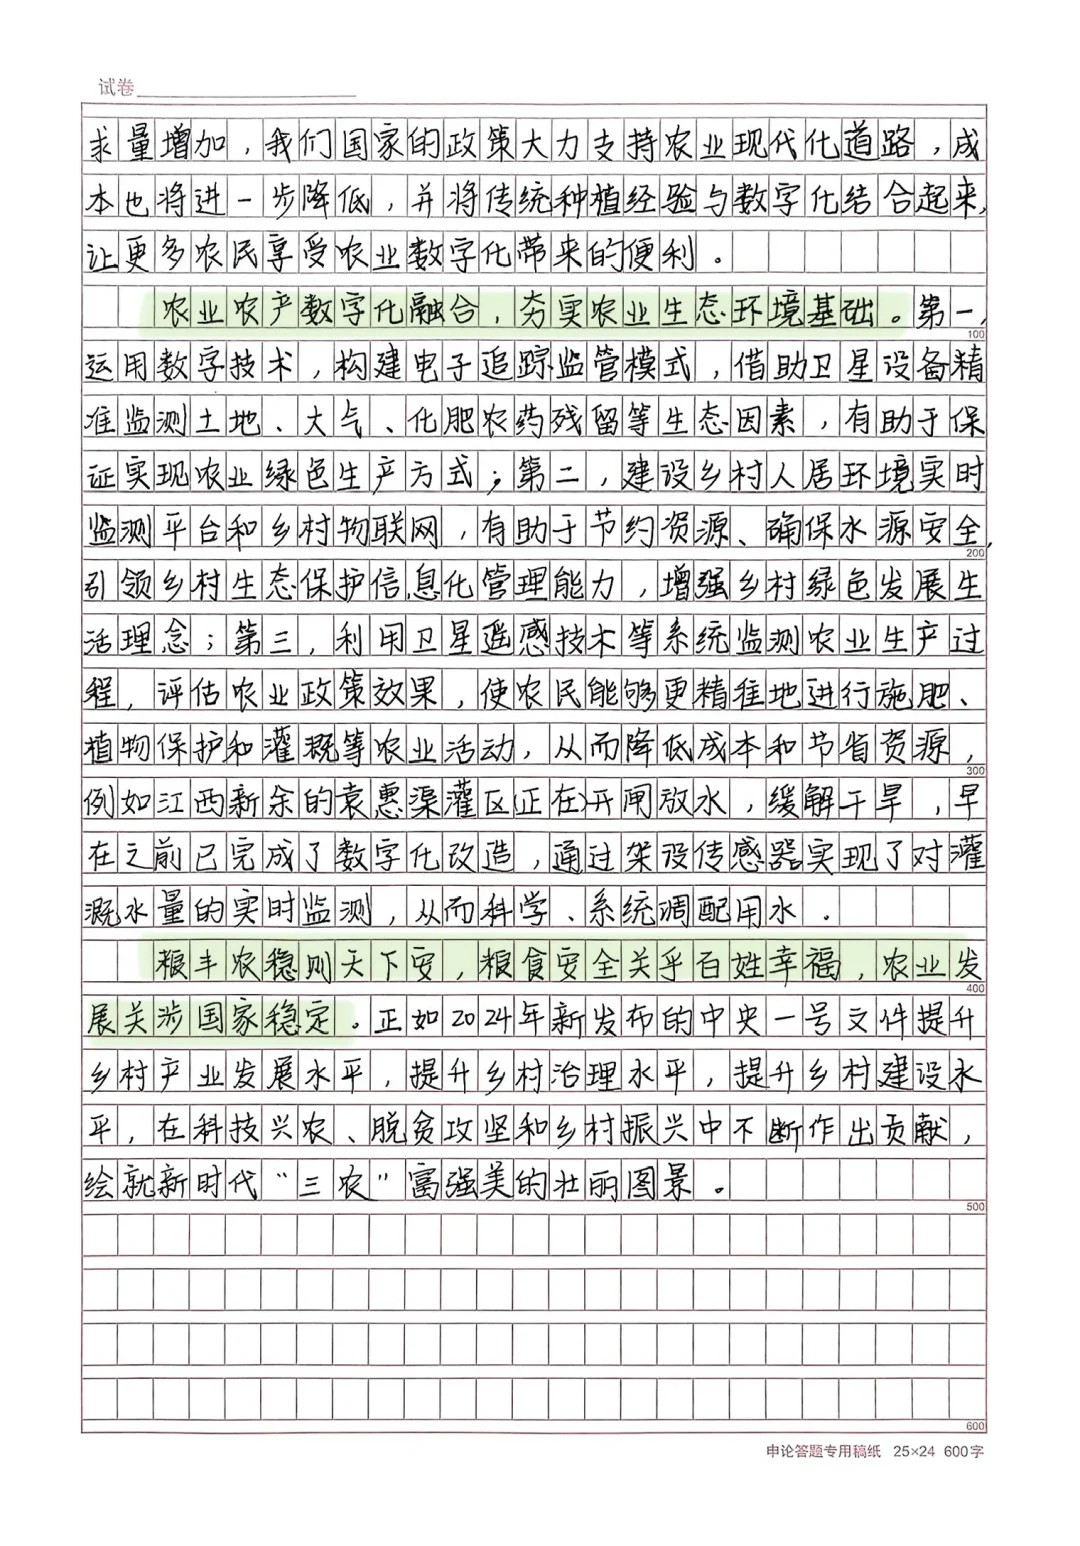 试卷
求量增加，我们国家的政策大力支持农业现代化道路，成
本也将进一步降低，并将传统种植经验与数字化结合起来，
让更多农民享受农业数字化带来的便利。
农业农产数字化融合，夯实农业生态环境基础。第一，
100
运用数字技术，构建电子追踪监管模式，借助卫星设备精
准监测土地、大气、化肥农药残留等生态因素，有助于保
证实现农业绿色生产方式；第二，建设乡村人居环境实时
监测平台和乡村物联网，有助于节约资源、确保水源安全，
200
引领乡村生态保护信息化管理能力，增强乡村绿色发展生
活理念；第三，利用卫星遥感技术等系统监测农业生产过
程，评估农业政策效果，使农民能够更精准地进行施肥、
植物保护和灌溉等农业活动，从而降低成本和节省资源，
300
例如江西新余的袁惠渠灌区(正在)开闸放水，缓解干旱，早
在之前已完成了数字化改造，通过架设传感器实现了对灌
溉水量的实时监测，从而科学、系统调配用水．
粮丰农稳则天下安，粮食安全关乎百姓幸福，农业发
400
展关涉国家稳定。正如2024年新发布的中央一号文件提升
乡村产业发展水平，提升乡村治理水平，提升乡村建设水
平，在科技兴农、脱贫攻坚和乡村振兴中不断作出贡献，
绘就新时代“三农”富强美的壮丽图景。
500
600
申论答题专用稿纸 25×24 600字